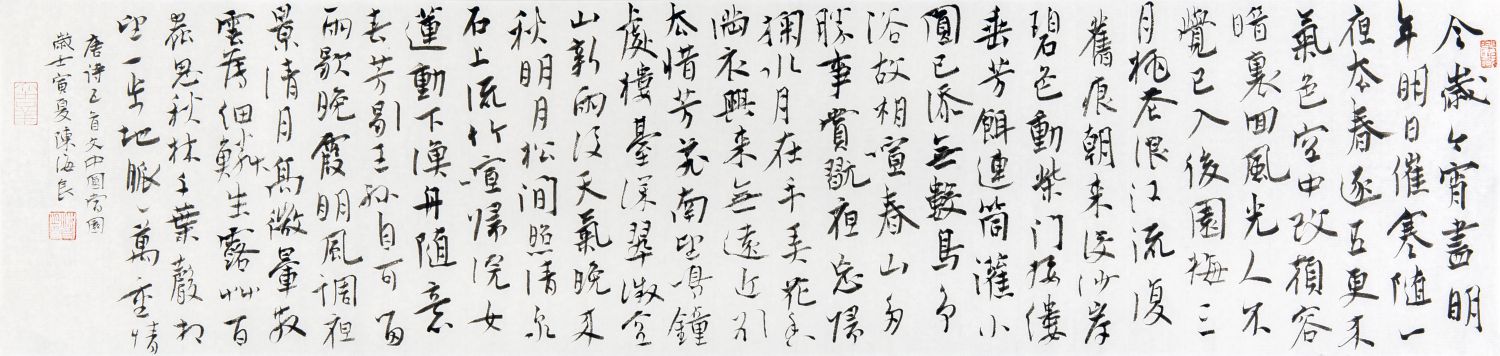 今歲々宵盡明
年明日催寒随一
夜去春逐五更来
氣色空中改顔容
暗裏回風光人不
覺已入後園梅三
月桃花浪江流復
舊痕朝来没沙岸
碧色動柴门接縷
垂芳餌連筒灌小
園已添無數鳥争
浴故相喧春山多
勝事賞翫夜忘歸
掬水月在手弄花香
满衣興来無遠近欲
去惜芳菲南望鳴鐘
處樓臺深翠微空
山新雨後天氣晚来
秋明月松间照清泉
石上流竹喧歸浣女
蓮動下漁舟随意
春芳歇王孫自可留
雨歇晚霞明風调夜
景清月高微暈散
雲薄细鳞生露草百
蟲思秋林千葉聲相
望一步地脈々萬重情
唐诗五首文中
歲壬寅夏陳海良